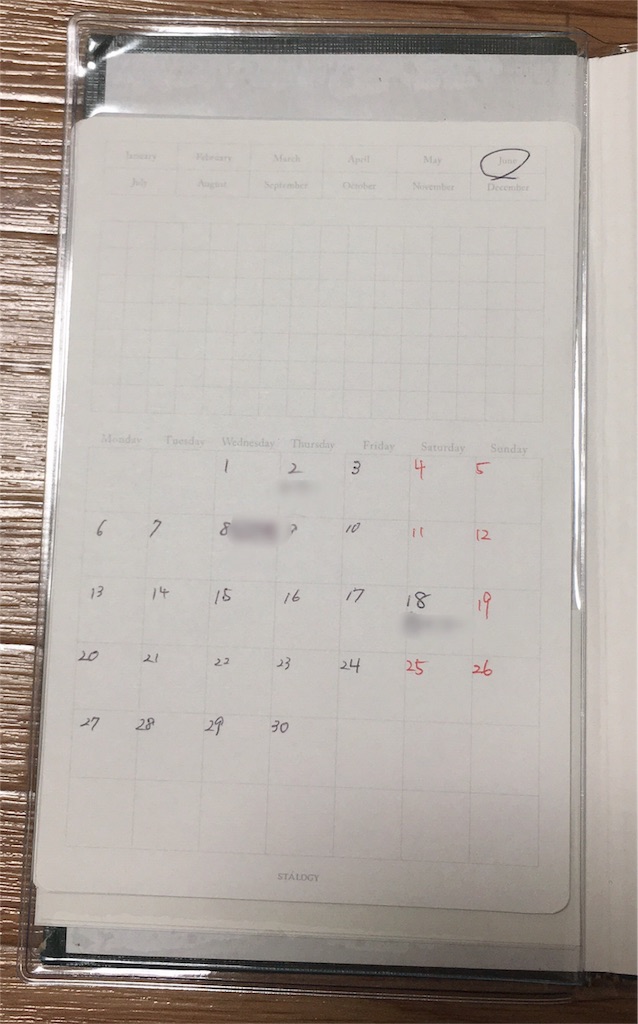 January February March April May June
July August September October November December
Monday Tuesday Wednesday Thursday Friday Saturday Sunday
1 2 3 4 5
6 7 8 9 10 11 12
13 14 15 16 17 18 19
20 21 22 23 24 25 26
27 28 29 30
STALOGY